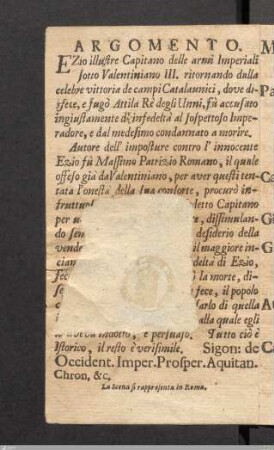 ARGOMENTO.
EZio illustre Capitano delle armi Imperiali
sotto Valentiniano III. ritornando dalla
celebre vittoria de campi Catalaunici, dove di-
sfece, e fugò Attila Rè degli Unni, fù accusato
ingiustamente d'infedeltà al sospettoso Impe-
radore, e dal medesimo condannato a morire.
Autore dell' imposture contro l' innocente
Ezio fù Massimo Patrizio Romano, il quale
offeso già da Valentiniano, per aver questi ten-
tata l'onestà della sua consorte, procurò in-
fruttuo detto Capitano
per u , dissimulan-
do sen desiderio della
vende il maggiore in-
cian deltà di Ezio,
fec ò la morte, di-
se fece, il popolo
c arlo di quella
alla quale egli
e persuaso. Tutto ciò è
Istorico, il resto è verisimile. Sigon: de
Occident. Imper. Prosper. Aquitan.
Chron, &c.
La Scena si rappresenta in Roma.